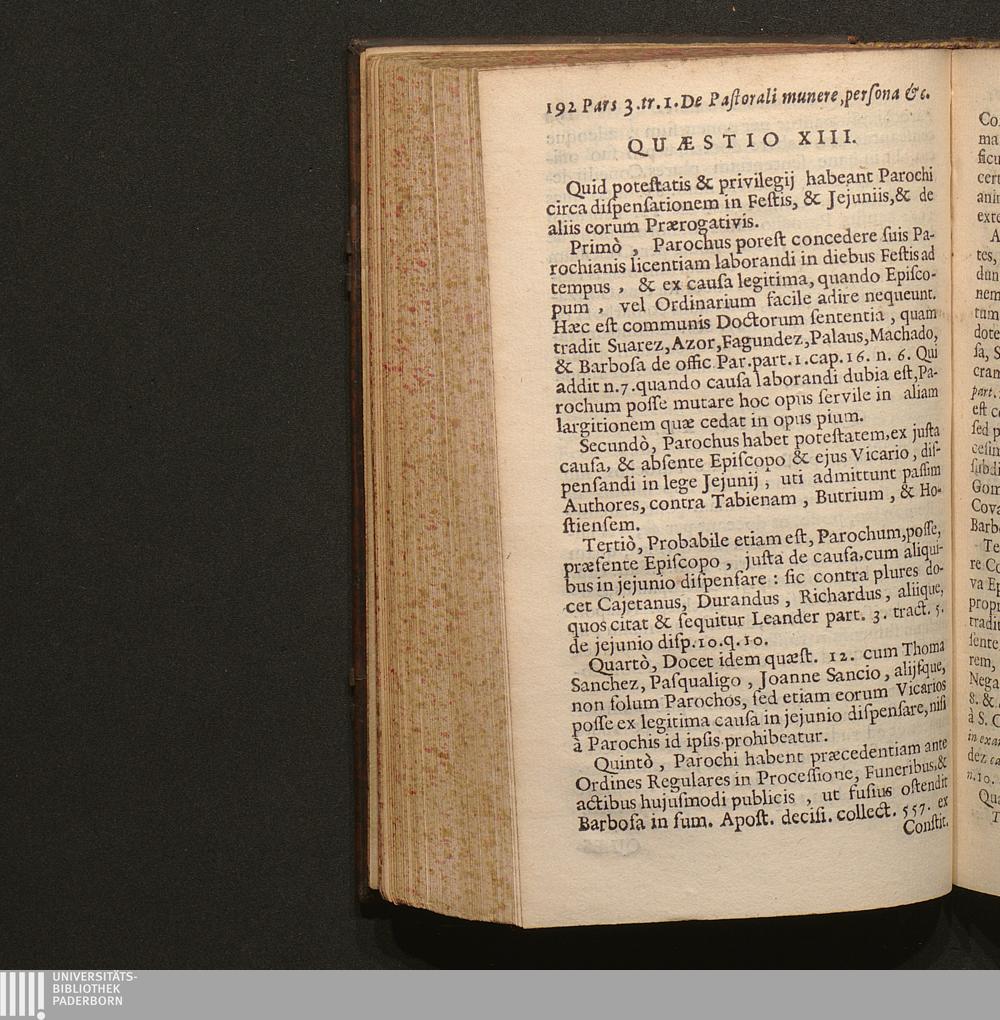 192 Pars 3.tr.1.De Paſtorali munere,perſona &c.
QUÆSTIO XIII.
Quid poteſtatis & privilegij habeant Parochi
circa diſpenſationem in Feſtis, & Jejuniis,& de
aliis eorum Prærogativis.
Primò , Parochus poreſt concedere ſuis Pa-
rochianis licentiam laborandi in diebus Feſtis ad
tempus , & ex cauſa legitima, quando Epiſco-
pum , vel Ordinarium facile adire nequeunt.
Hæc eſt communis Doctorum ſententia , quam
tradit Suarez,Azor,Fagundez,Palaus,Machado,
& Barboſa de offic Par.part.1.cap.16. n. 6. Qui
addit n.7.quando cauſa laborandi dubia eſt,Pa-
rochum poſſe mutare hoc opus ſervile in aliam
largitionem quæ cedat in opus pium.
Secundò, Parochus habet poteſtatem,ex juſta
cauſa, & abſente Epiſcopo & ejus Vicario, diſ-
penſandi in lege Jejunij ; uti admittunt paſſim
Authores, contra Tabienam , Butrium , & Ho-
ſtienſem.
Tertiò, Probabile etiam eſt, Parochum,poſſe,
præſente Epiſcopo , juſta de cauſa,cum aliqui-
bus in jejunio diſpenſare : ſic contra plures do-
cet Cajetanus, Durandus , Richardus, aliique,
quos citat & ſequitur Leander part. 3. tract. 5.
de jejunio diſp.10.q.10.
Quartò, Docet idem quæſt. 12. cum Thoma
Sanchez, Paſqualigo , Joanne Sancio, alijſque,
non ſolum Parochos, ſed etiam eorum Vicarios
poſſe ex legitima cauſa in jejunio diſpenſare,niſi
à Parochis id ipſis prohibeatur.
Quintò , Parochi habent præcedentiam ante
Ordines Regulares in Proceſſione, Funeribus,&
actibus hujuſmodi publicis , ut fuſius oſtendit
Barboſa in ſum. Apoſt. deciſi. collect. 557. ex
Conſtit.
UNIVERSITÄTS-
BIBLIOTHEK
PADERBORN